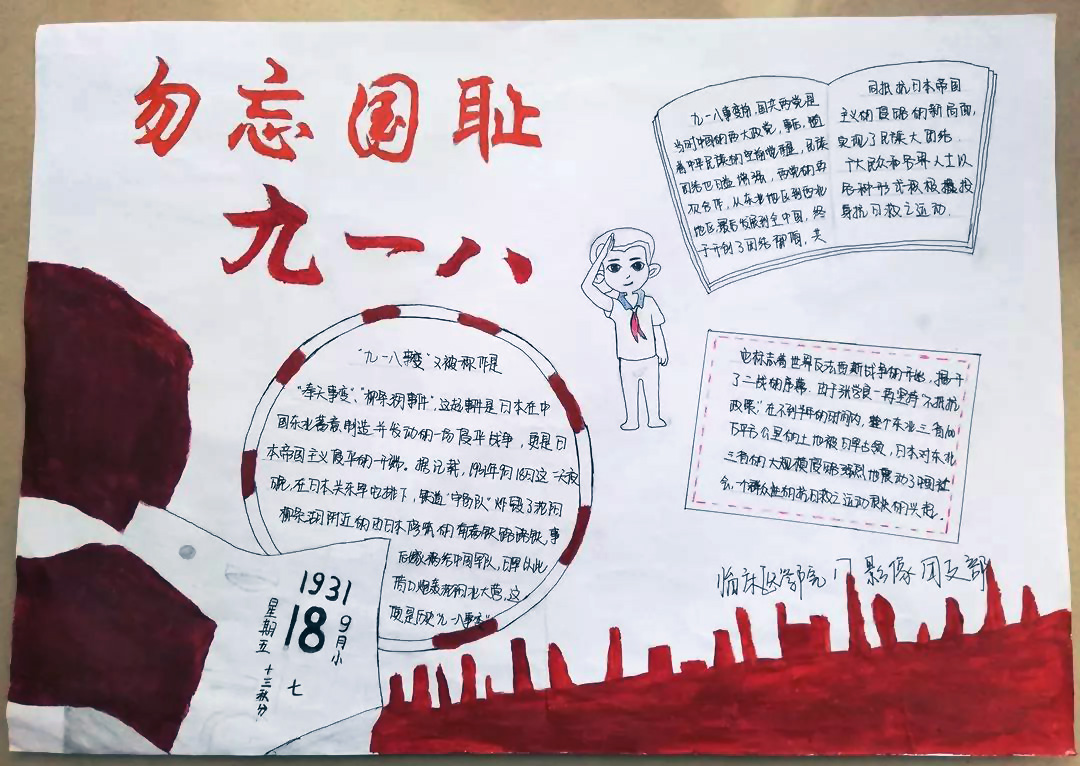 勿忘国耻
九一八
九一八事变前,国共两党是
当时中国的两大政党,事后,随
着中华民族的空前觉醒,民族
团结日益增强,两党的再
次合作,从东北地区到西北
地区最后发展到全中国,终
于开创了团结御侮,共
同抵抗日本帝国
主义的侵略的新局面,
实现了民族大团结.
广大民众和各界人士以
各种形式积极投
身抗日救亡运动.
“九一八事变”又被称作是
“奉天事变”、“柳条湖事件”,这起事件是日本在中
国东北蓄意制造并发动的一场侵华战争,更是日
本帝国主义侵华的开端。据记载,1931年9月18日这一天夜
晚,在日本关东军安排下,铁道“守备队”炸毁了沈阳
柳条湖附近的由日本修筑的南满铁路路轨,事
后嫁祸给中国军队,日军以此
为由炮轰沈阳北大营,这
便是历史“九一八事变”
也标志着世界反法西斯战争的开始,揭开
了二战的序幕.由于张学良一再坚持“不抵抗
政策”在不到半年的时间内,整个东北三省100
万平方公里的土地被日军占领,日本对东北
三省的大规模侵略强烈地震动了中国社
会,一个群众性的抗日救亡运动很快的兴起.
临床医学院 门 影像团支部
1931
9月小
18
星期五
七
十三秋分